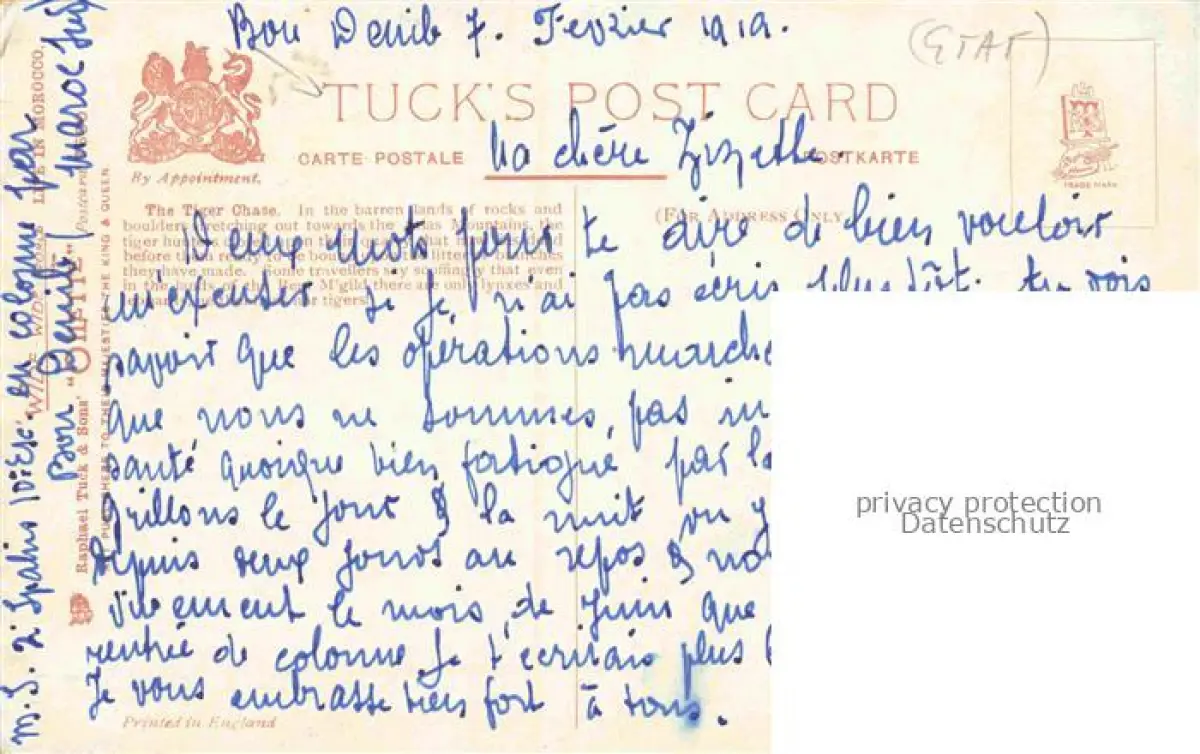 Bou Denib 7. Fevrier 1919.
(ETAT)
TUCK'S POST CARD
CARTE POSTALE
POSTKARTE
By Appointment.
TRADE MARK
Ma chère Zizette.
The Tiger Chase. In the barren lands of rocks and
boulders stretching out towards the Atlas Mountains, the
tiger hunters
before them
they have made. Some travellers say scoffingly that even
in the lands of the Beni M'gild there are only lynxes and
tigers
(FOR ADDRESS ONLY)
Deux mots pour te dire de bien vouloir
m'excuser si je n'ai pas écris plus tôt. tu
savoir que les opérations marche
que nous ne sommes pas in
santé quoique bien fatigué par la
grillons le jour & la nuit on y
depuis deux jours au repos & no
vivement le mois de Juin que
rentrée de colonne je t'écrirais plus
Je vous embrasse bien fort à tous.
Printed in England
M.S. 2e Spahis en colonne par
Bou Denib (Maroc Sud
LIFE IN MOROCCO.
WIDE
Raphael Tuck & Sons' "OILETTE"
PUBLISHERS TO THEIR MAJESTIES THE KING & QUEEN
privacy protection
Datenschutz